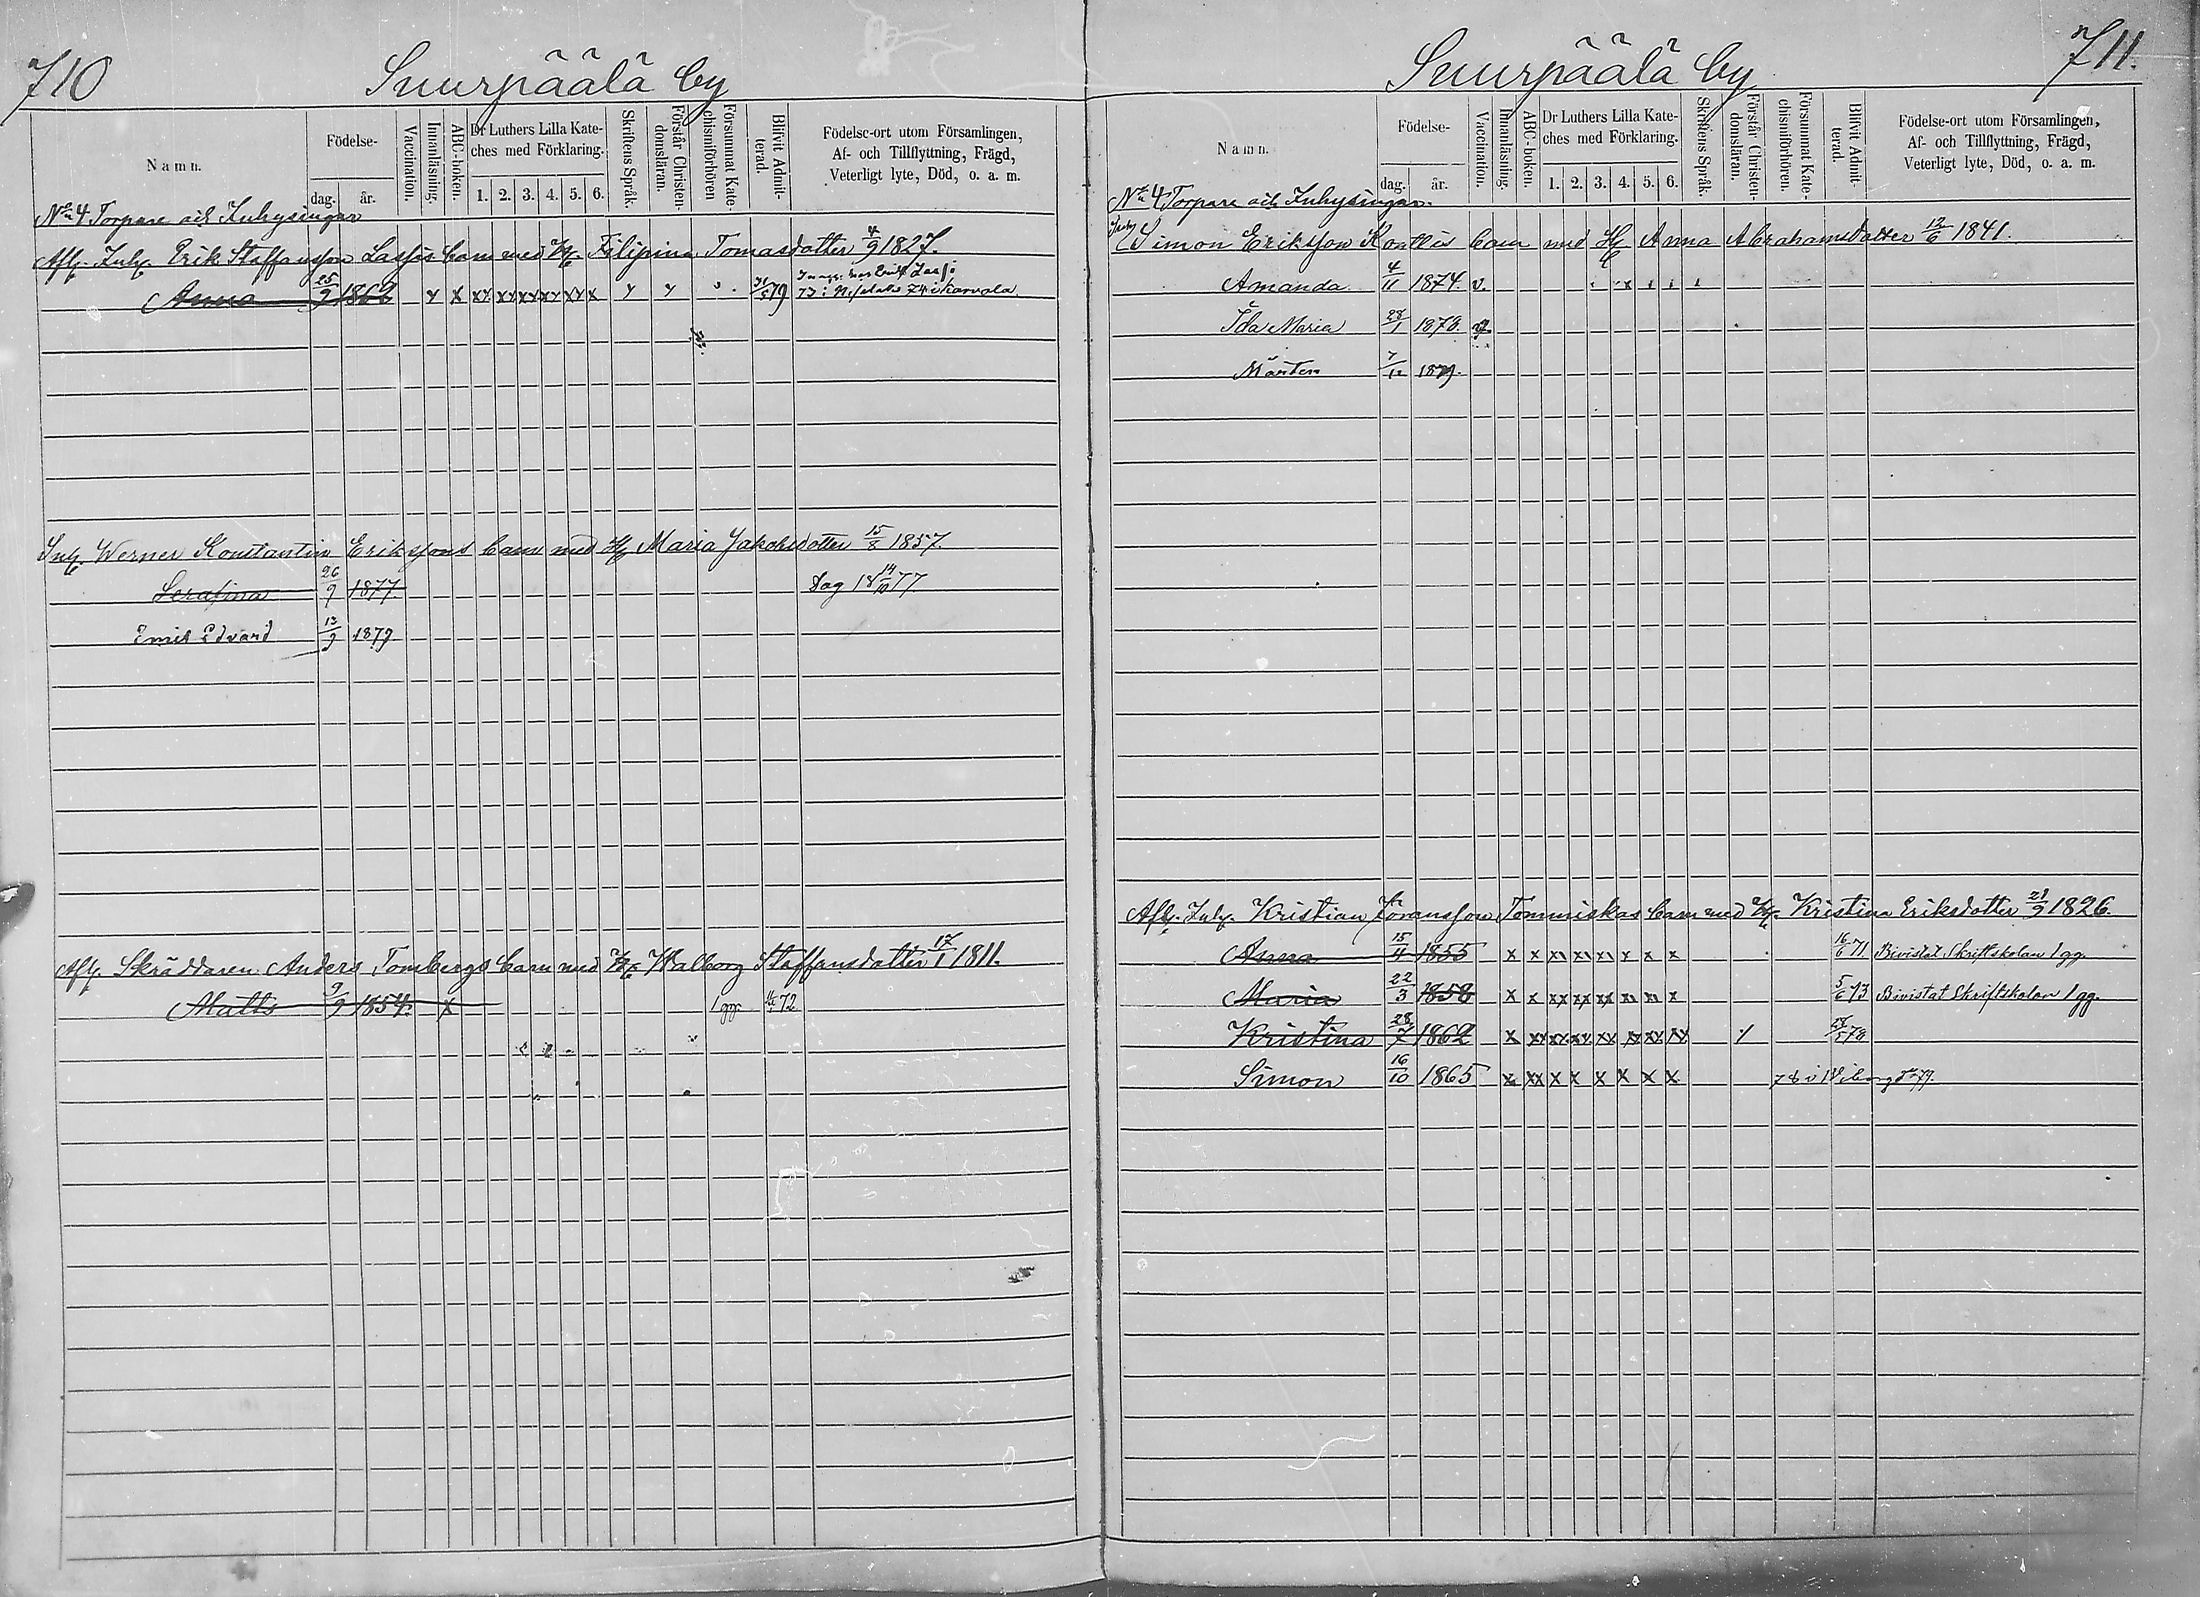 710
Suurpäälä by
Namn.
Födelse-
dag.
år.
Vaccination.
Innanläsning.
ABC-boken.
Dr Luthers Lilla Kate-
ches med Förklaring.
1. 2. 3. 4. 5. 6.
Skriftens Språk.
Förstår Christen-
domsläran.
Försummat Kate-
chismiförhören
Blifvit Admit-
terad.
Födelse-ort utom Församlingen,
Af- och Tillflyttning, Frägd,
Veterligt lyte, Död, o. a. m.
No 4 Torpare och Inhysingar
Afl. Inh. Erik Staffansson Lassis barn med H. Filipina Tomasdotter 4/9 1827.
Anna 25/9 1862 x x xx xx xx xx xx x 79
Inh. Werner Konstantin Erikssons barn med H. Maria Jakobsdotter 15/8 1857.
Serafina 26/9 1877 Dog 18 14/10 77.
Emil Edvard 13/9 1879
Afl. Skräddaren Anders Tombergs barn med H. Walborg Staffansdotter 17/1 1811.
Matts 9/9 1854. x 1 gg. 72
711.
Suurpäälä by
Namn.
Födelse-
dag.
år.
Vaccination.
Innanläsning.
ABC-boken.
Dr Luthers Lilla Kate-
ches med Förklaring.
1. 2. 3. 4. 5. 6.
Skriftens Språk.
Förstår Christen-
domsläran.
Försummat Kate-
chismiförhören.
Blifvit Admit-
terad.
Födelse-ort utom Församlingen,
Af- och Tillflyttning, Frägd,
Veterligt lyte, Död, o. a. m.
No 4 Torpare och Inhysingar.
Simon Eriksson Konttis barn med H. Anna Abrahamsdotter 12/6 1841.
Amanda 4/11 1874. v.
Ida Maria 28/1 1878. v
Mårten 7/12 1879.
Afl. Inh. Kristian Göransson Tommiskas barn med H. Kristina Eriksdotter 21/9 1826.
Anna 15/4 1855 x x xx xx xx x x x 16/6 71 Bivistat Skriftskolan 1 gg.
Maria 22/3 1858 x x xx xx xx xx xx x 5/6 73 Bivistat Skriftskolan 1 gg.
Kristina 28/7 1862 x xx xx xx xx xx xx xx 78
Simon 16/10 1865 x xx x x x x x x 78 i Wiborg 79.